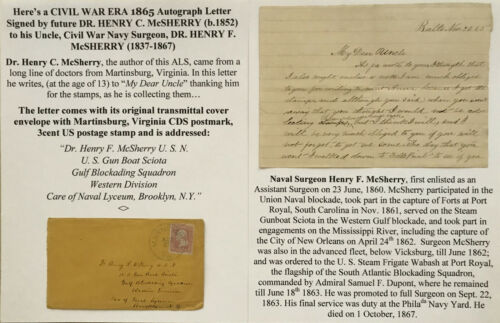 Here's a CIVIL WAR ERA 1865 Autograph Letter
Signed by future DR. HENRY C. McSHERRY (b.1852)
to his Uncle, Civil War Navy Surgeon, DR. HENRY F.
McSHERRY (1837-1867)
Dr. Henry C. McSherry, the author of this ALS, came from a
long line of doctors from Martinsburg, Virginia. In this letter
he writes, (at the age of 13) to "My Dear Uncle" thanking him
for the stamps, as he is collecting them…
The letter comes with its original transmittal cover
envelope with Martinsburg, Virginia CDS postmark,
3cent US postage stamp and is addressed:
"Dr. Henry F. McSherry U. S. N.
U. S. Gun Boat Sciota
Gulf Blockading Squadron
Western Division
Care of Naval Lyceum, Brooklyn, N.Y."
<>
Dr Henry F. McSherry U.S.N.
U.S. Gun Boat Sciota
Gulf Blockading Squadron
Western Division
Care of Naval Lyceum
Balto Nov 26 65
My Dear Uncle
As pa wrote to you I thought that
I also might I am much obliged
to you for
stamps although you said when you went
away that you thought I would not be
stamps, but I think I will, and I
will be very much obliged to you if you will
not forget to get me some the day that you
went down to to see if you
Naval Surgeon Henry F. McSherry, first enlisted as an
Assistant Surgeon on 23 June, 1860. McSherry participated in the
Union Naval blockade, took part in the capture of Forts at Port
Royal, South Carolina in Nov. 1861, served on the Steam
Gunboat Sciota in the Western Gulf blockade, and took part in
engagements on the Mississippi River, including the capture of
the City of New Orleans on April 24th 1862. Surgeon McSherry
was also in the advanced fleet, below Vicksburg, till June 1862;
and was ordered to the U. S. Steam Frigate Wabash at Port Royal,
the flagship of the South Atlantic Blockading Squadron,
commanded by Admiral Samuel F. Dupont, where he remained
till June 18th 1863. He was promoted to full Surgeon on Sept. 22,
1863. His final service was duty at the Philada Navy Yard. He
died on 1 October, 1867.